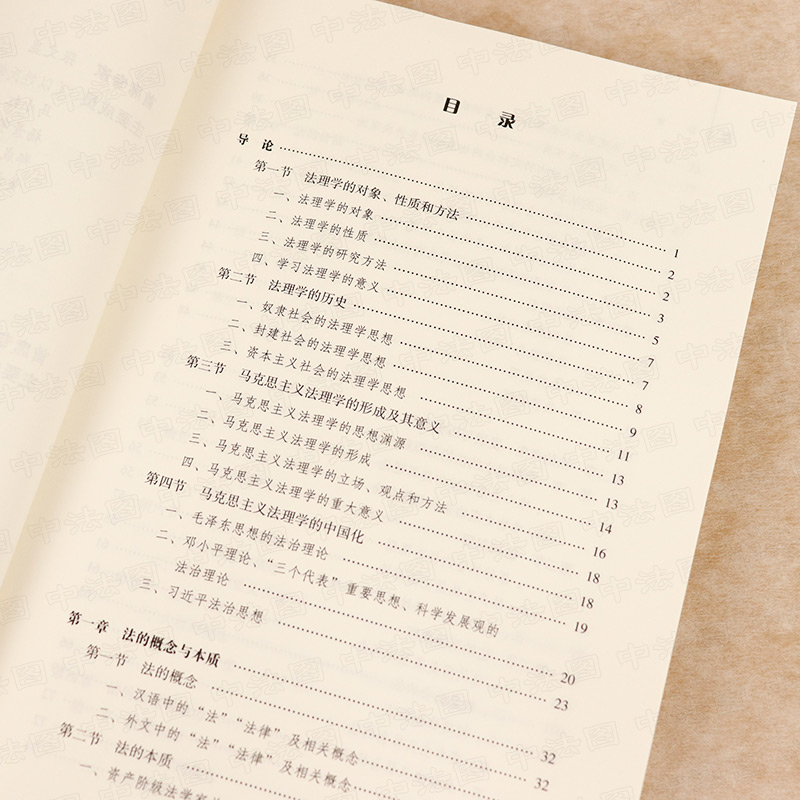 目 录
导 论 1
第一节 法理学的对象、性质和方法 2
一、法理学的对象 2
二、法理学的性质 3
三、法理学的研究方法 5
四、学习法理学的意义 7
第二节 法理学的历史 7
一、奴隶社会的法理学思想 8
二、封建社会的法理学思想 9
三、资本主义社会的法理学思想 11
第三节 马克思主义法理学的形成及其意义 13
一、马克思主义法理学的思想渊源 13
二、马克思主义法理学的形成 14
三、马克思主义法理学的立场、观点和方法 16
四、马克思主义法理学的重大意义 18
第四节 马克思主义法理学的中国化 18
一、毛泽东思想的法治理论 19
二、邓小平理论、“三个代表”重要思想、科学发展观的
法治理论 20
三、习近平法治思想 23
第一章 法的概念与本质 32
第一节 法的概念 32
一、汉语中的“法”“法律”及相关概念
二、外文中的“法”“法律”及相关概念
第二节 法的本质
一、资产阶级法学家
中法图